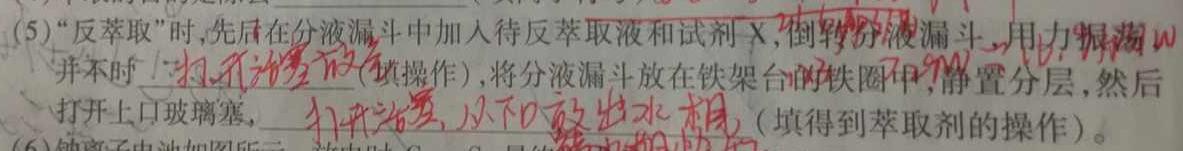 (5)“反萃取”时,先后在分液漏斗中加入待反萃取液和试剂X,倒转分液漏斗,用力振荡
并不时 打开活塞放气 (填操作),将分液漏斗放在铁架台的铁圈中,静置分层,然后
打开上口玻璃塞, 打开活塞,从下口放出水相 (填得到萃取剂的操作)。